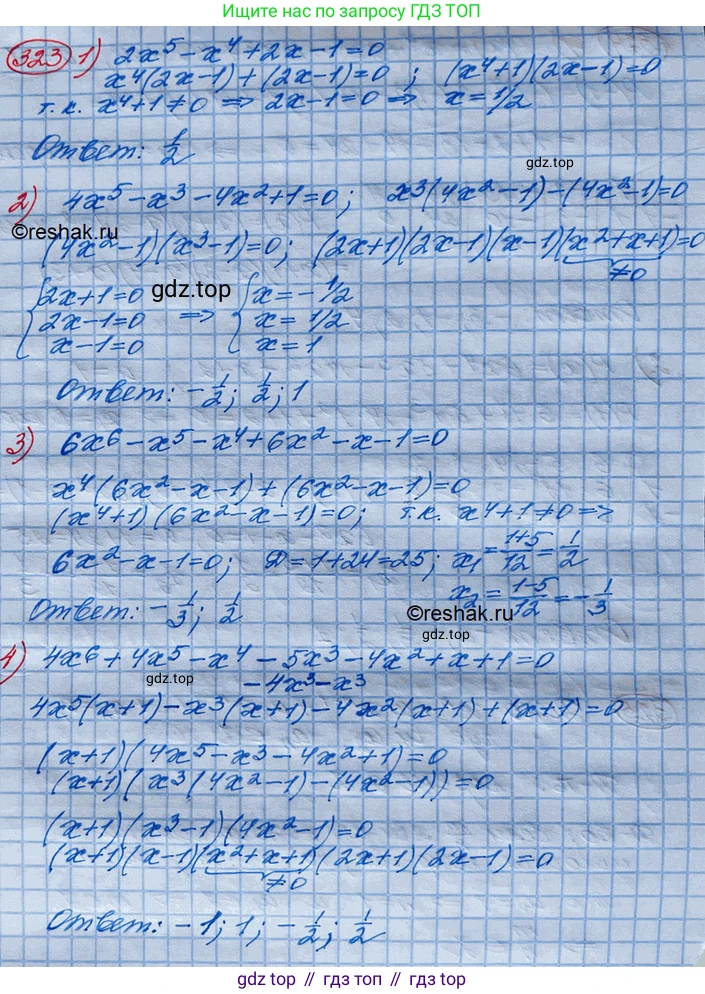 Ищите нас по запросу ГДЗ ТОП
323 1) 2x⁵ - x⁴ + 2x - 1 = 0
x⁴(2x-1) + (2x-1) = 0 ; (x⁴+1)(2x-1) = 0
т.к. x⁴+1 ≠ 0 ⇒ 2x-1=0 ⇒ x = 1/2
Ответ: 1/2
gdz.top
2) 4x⁵ - x³ - 4x² + 1 = 0; x³(4x² - 1) - (4x² - 1) = 0
©reshak.ru
(4x²-1)(x³-1)=0; (2x+1)(2x-1)(x-1)(x²+x+1)=0
≠0
{2x+1=0 {x=-1/2
gdz.top
2x-1=0 ⇒ x=1/2
x-1=0 x=1
Ответ: -1/2; 1/2; 1
3) 6x⁶ - x⁵ - x⁴ + 6x² - x - 1 = 0
x⁴(6x² - x - 1) + (6x² - x - 1) = 0
(x⁴+1)(6x² - x - 1) = 0; т.к. x⁴+1 ≠ 0 ⇒
6x² - x - 1 = 0; D = 1+24 = 25; x₁ = 1+5/12 = 1/2
x₂ = 1-5/12 = -1/3
Ответ: -1/3; 1/2
©reshak.ru
gdz.top
4) 4x⁶ + 4x⁵ - x⁴ - 5x³ - 4x² + x + 1 = 0
-4x³ - x³
gdz.top
4x⁵(x+1) - x³(x+1) - 4x²(x+1) + (x+1) = 0
(x+1)(4x⁵ - x³ - 4x² + 1) = 0
(x+1)(x³(4x²-1) - (4x²-1)) = 0
(x+1)(x³-1)(4x²-1) = 0
(x+1)(x-1)(x²+x+1)(2x+1)(2x-1) = 0
≠0
Ответ: -1; 1; -1/2; 1/2
gdz top // гдз топ // gdz.top